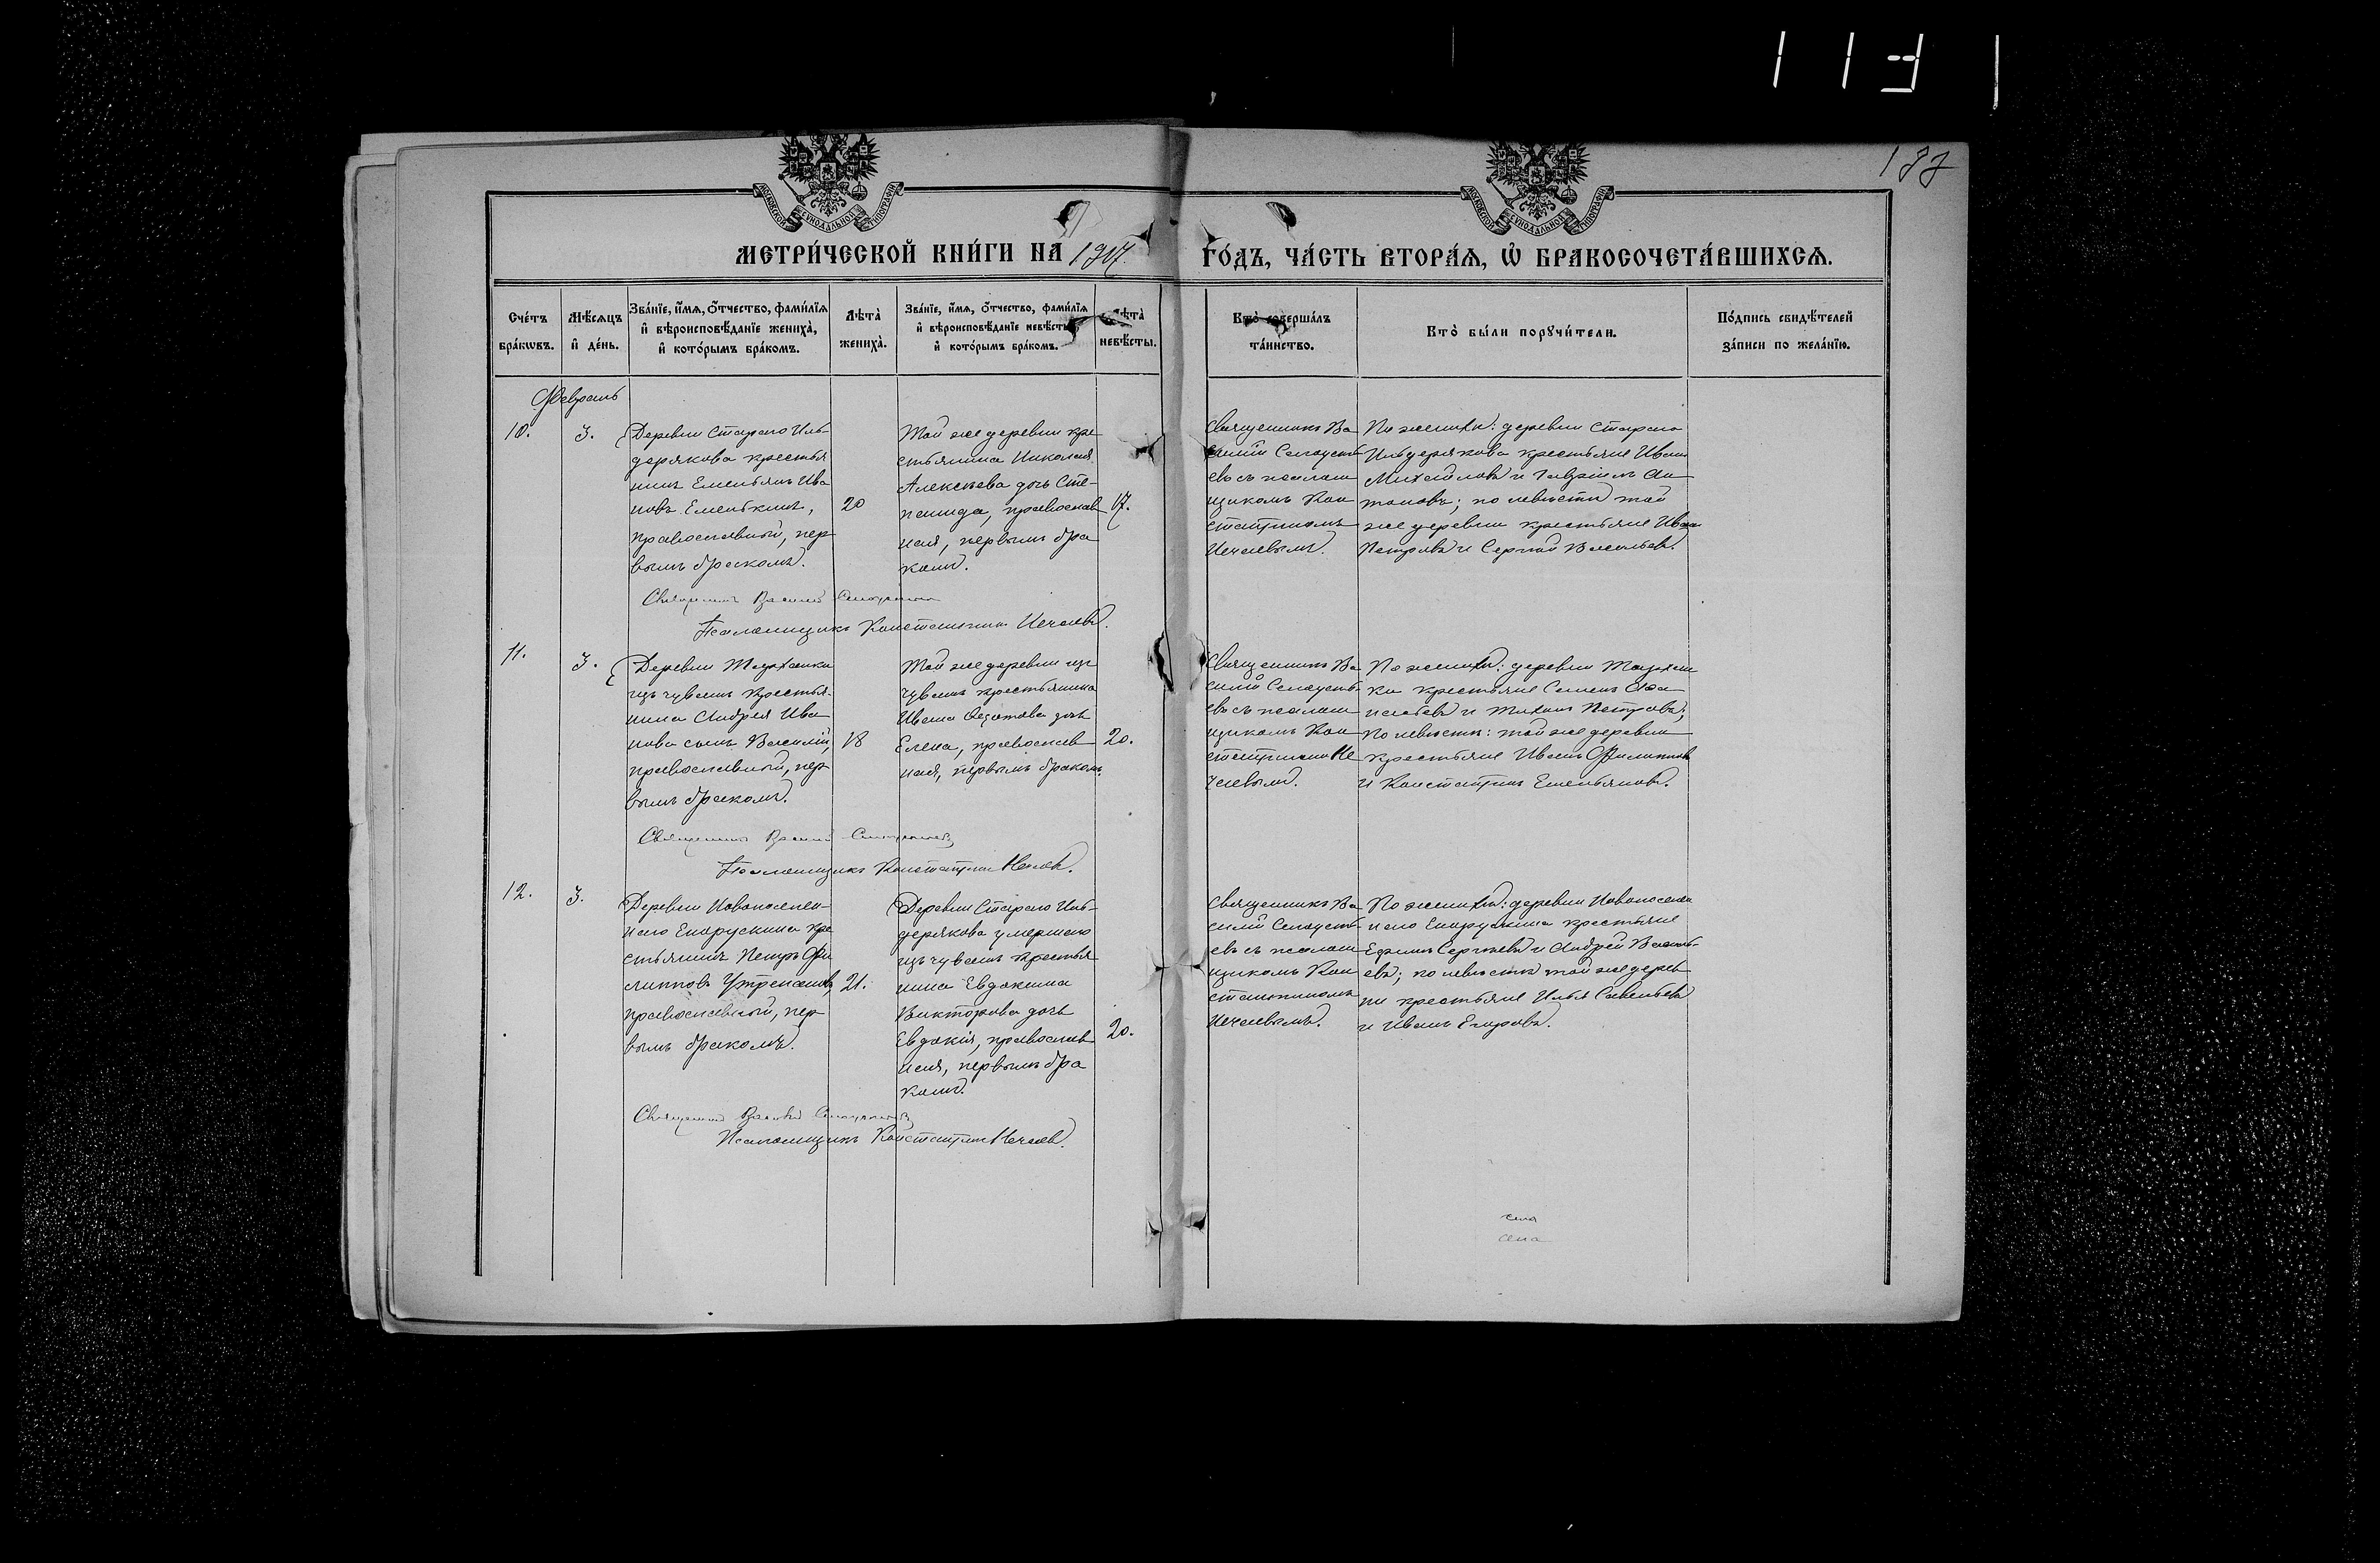 113
МОСКОВСКОЙ СѴНОДАЛЬНОЙ ТИПОГРАФІИ
МОСКОВСКОЙ СѴНОДАЛЬНОЙ ТИПОГРАФІИ
МЕТРИ́ЧЕСКОЙ КНИ́ГИ НА 1907 ГО́ДЪ, ЧА́СТЬ ВТОРА́Ѧ, Ѽ БРАКОСОЧЕТА́ВШИХСѦ.
Сче́тъ
бра́кѡвъ.
Мѣ́сѧцъ
и҆ де́нь.
Зва́нїе, и҆́мѧ, ѻ҆́тчество, фами́лїѧ
и҆ вѣроисповѣ́данїе жениха̀,
и҆ кото́рымъ бра́комъ.
Лѣта̀
жениха̀.
Зва́нїе, и҆́мѧ, ѻ҆́тчество, фами́лїѧ
и҆ вѣроисповѣ́данїе невѣ́сты
и҆ кото́рымъ бра́комъ.
Лѣта̀
невѣ́сты.
Кто̀ соверша́лъ
та́инство.
Кто̀ бы́ли порꙋчи́тели.
По́дпись свидѣ́телей
за́писи по жела́нїю.
Февраль
10.
3.
Деревни Стараго Иль-
дерякова крестья
нинъ Емельянъ Ива
новъ Емелькинъ,
православный, пер
вымъ бракомъ.
20
Той же деревни кре
стьянина Николая
Алексѣева дочь Сте-
панида, православ
ная, первымъ бра
комъ.
17.
Священникъ Ва
силій
евъ съ псалом
щикомъ Кон
стантиномъ
Нечаевымъ.
По женихѣ: деревни Стараго
Ильдерякова крестьяне Иванъ
Михайловъ и Гавріилъ Ан
тоновъ; по невѣстѣ той
же деревни крестьяне Иванъ
Петровъ и Сергѣй Васильевъ.
Священникъ Василій
Псаломщикъ Константинъ Нечаевъ.
11.
3.
Деревни
изъ чувашъ крестья-
нина Андрея Ива
нова сынъ Василій,
православный, пер
вымъ бракомъ.
18
Той же деревни изъ
чувашъ крестьянина
Ивана Федотова дочь
Елена, православ
ная, первымъ бракомъ.
20.
Священникъ Ва
силій
евъ съ псалом
щикомъ Кон
стантиномъ Не
чаевымъ.
По женихѣ: деревни
ки крестьяне Семенъ Афа
насьевъ и Тихонъ Петровъ;
по невѣстѣ: той же деревни
крестьяне Иванъ Филипповъ
и Константинъ Емельяновъ.
Священникъ Василій
Псаломщикъ Константинъ Нечаевъ.
12.
3.
Деревни Новопоселен-
наго кре
стьянинъ Петръ Фи
липповъ
православный, пер
вымъ бракомъ.
21.
Деревни Стараго Иль-
дерякова умершаго
изъ чувашъ крестья
нина Евдокима
Викторова дочь
Евдокія, православ
ная, первымъ бра
комъ.
20.
Священникъ Ва
силій
евъ съ псалом
щикомъ Кон
стантиномъ
Нечаевымъ.
По женихѣ: деревни Новоселен
наго крестьяне
Ефимъ Сергѣевъ и Андрей Василь-
евъ; по невѣстѣ той же дерев
ни крестьяне Илья Савельевъ
и Иванъ Егоровъ.
Священникъ Василій
Псаломщикъ Константинъ Нечаевъ.
села
села